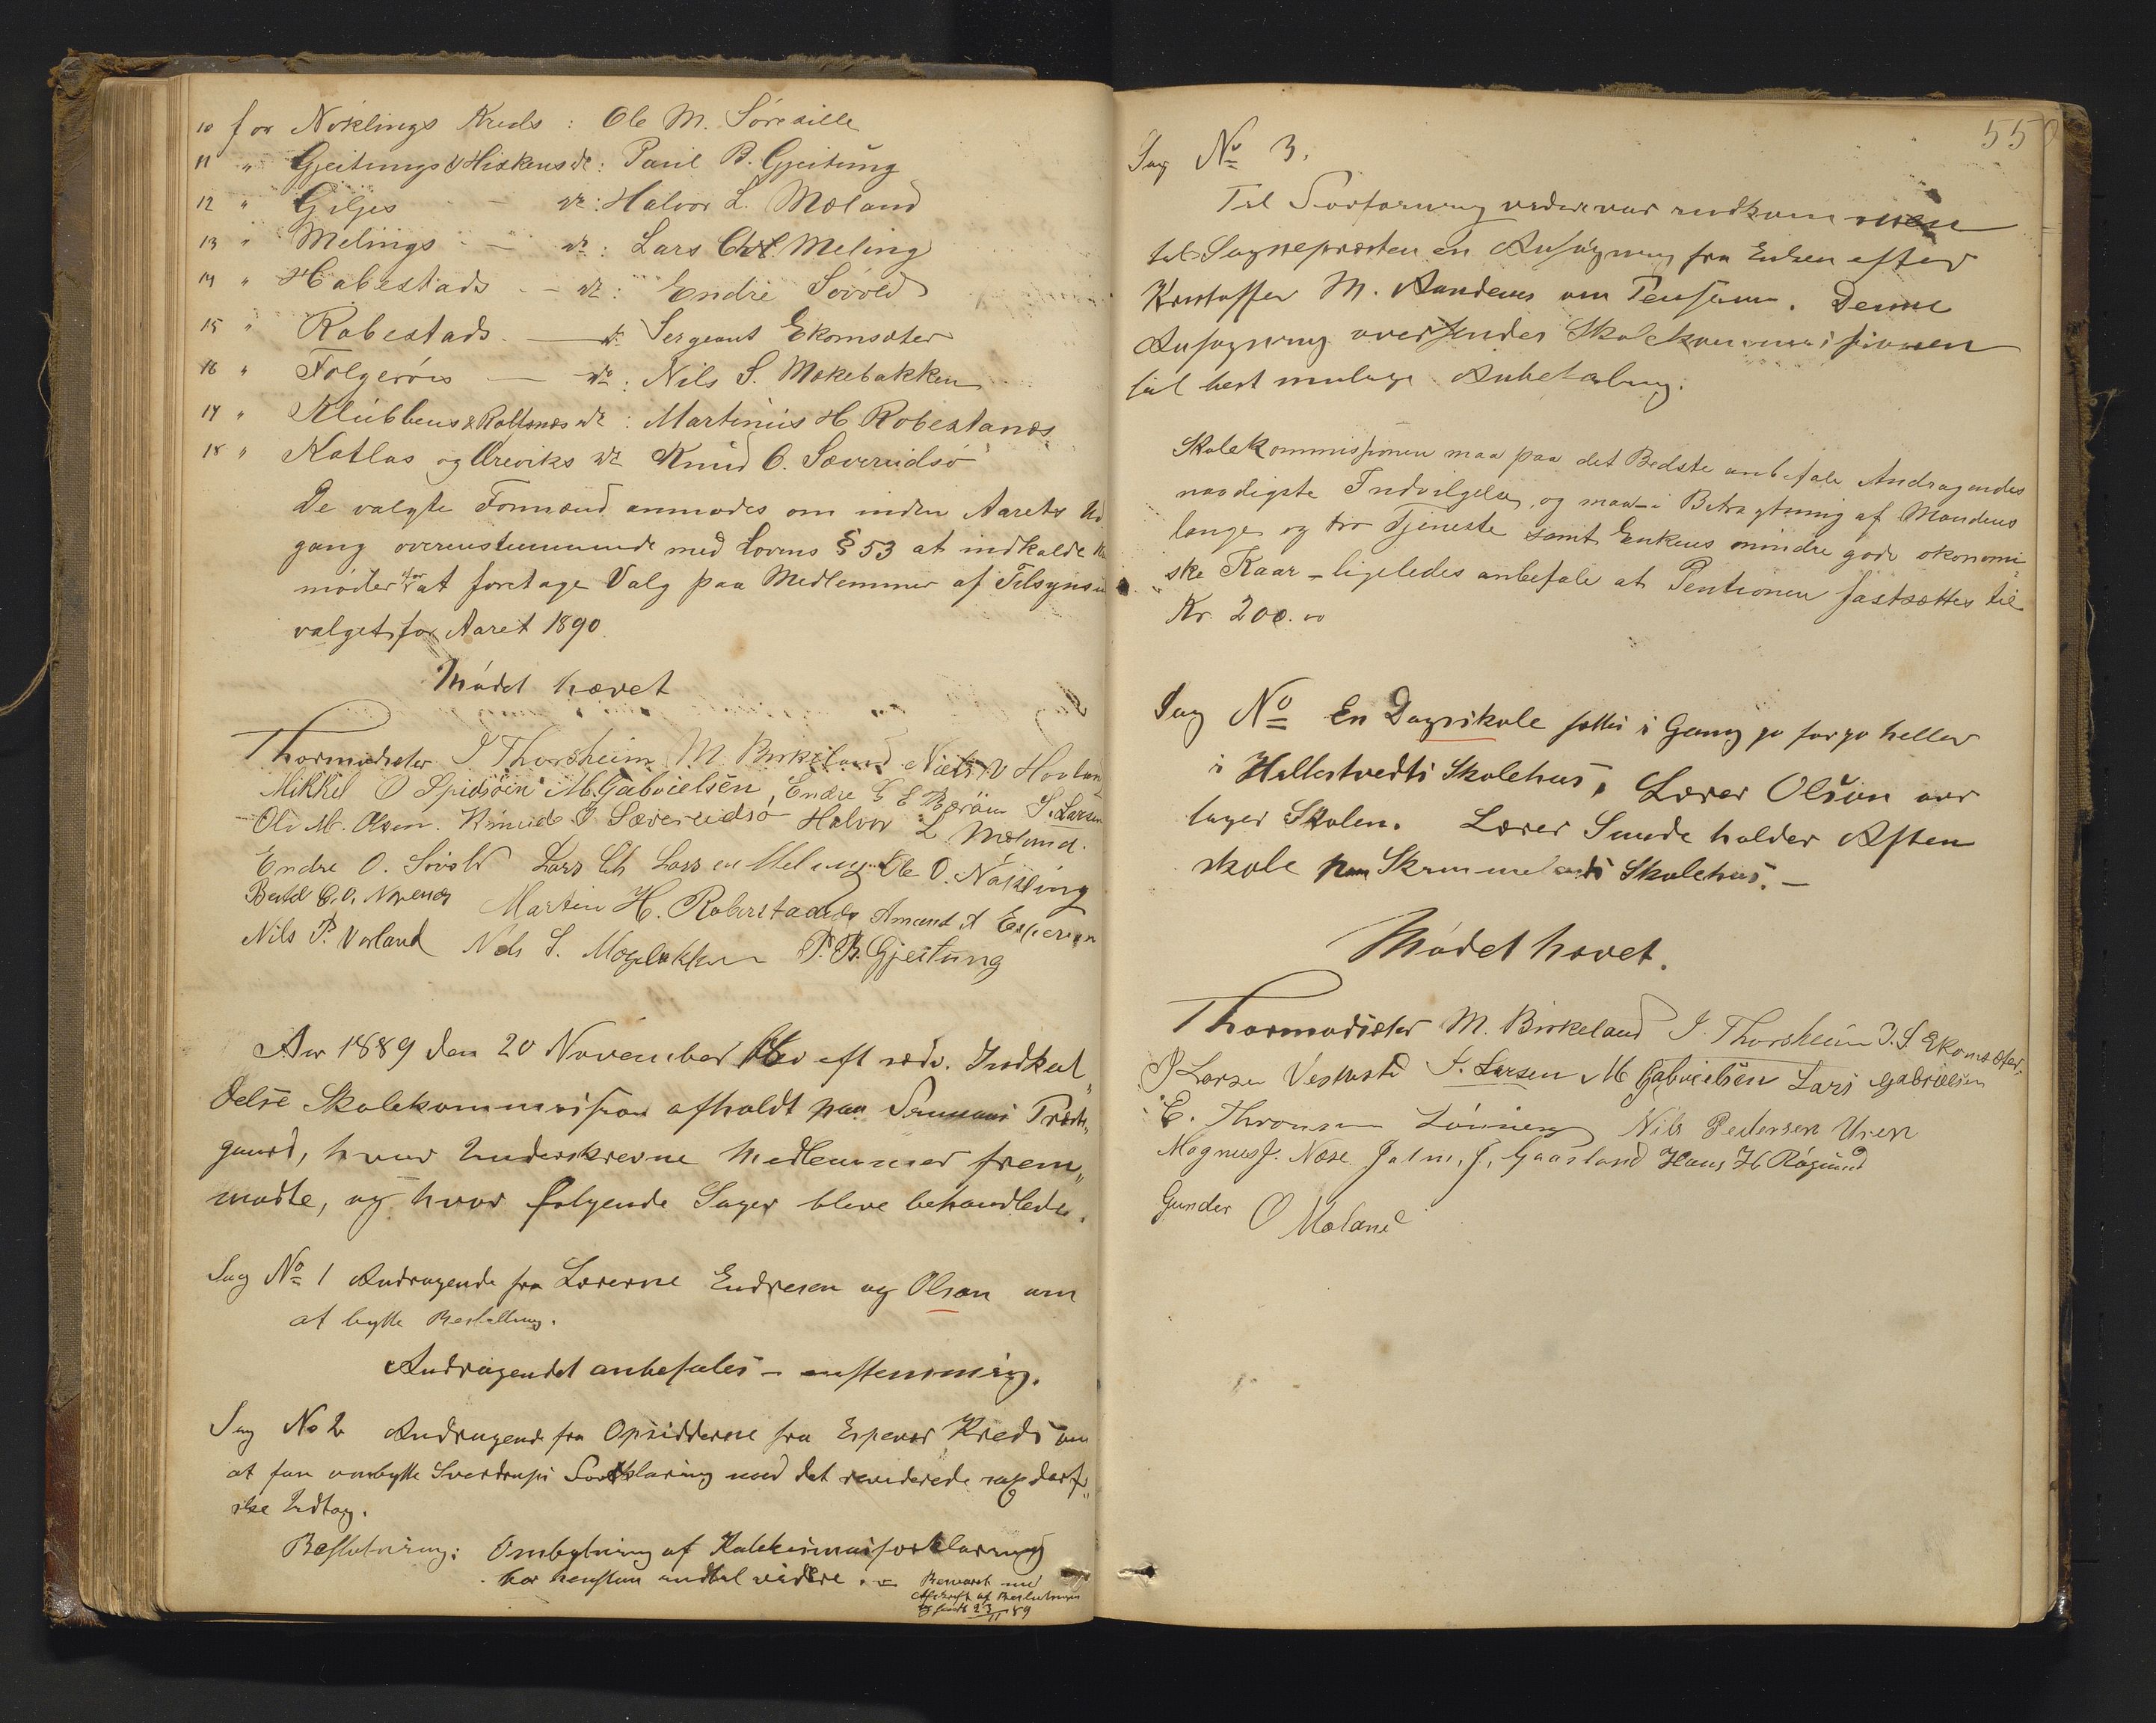 10 for Nöklings Kreds : Ole M. Söreidle
11 " Gjeitungs & Hiskens do : Paul B. Gjeitung
12 " Giljes — do : Halvor L. Mæland
13 " Melings — do : Lars Chr. Meling
14 " Habestads — do : Endre Sövold
15 " Robestads — do Sergeant Ekornsæter
16 " Folgeröes — do : Nils S. Mokebakken
17 " Klubbens & Rolfsnæs do : Martinius H Robestanæs
18 " Katlas og Ureviks do Knud O. Sævereidsö
De valgte Formænd anmodes om inden Aarets Ud
gang overensstemmende med Lovens § 53 at indkalde
møder for at foretage Valg paa Medlemmer af Tilsyns
valget for Aaret 1890.
Mödet hævet
Thormodsæter J Thorsheim M. Birkeland Niels N Hovland
Mikkel O Spidsöen M. Gabrielsen, Endre E S. Larsen
Ole M. Olsen. Knud O Sævereidsö Halvor L Mæland.
Endre O. Sövold Lars Ch Larsen Meling Ole O. Nökling
Martin H. Roberstad Amund A Espevær
Nils P. Vorland Nels S. P. B. Gjeitung
Aar 1889 den 20 November blev eft. sædv. Indkal„
delse Skolekommission afholdt paa Præste„
gaard, hvor Underskrevne Medlemmer frem„
mødte, og hvor følgende Sager bleve behandlede.
Sag No 1 Andragende fra Lærerne Endresen og Olson om
at bytte Bestilling.
Andragendet anbefales – enstemmig.
Sag No 2 Andragende fra Opsidderne fra Espevær Kreds om
at faa ombytte Sverdrups Forklaring med det reviderede
ske Udtog.
Beslutning: Ombytning af Katekismusforklaring
bør henstaa indtil videre. – Besvaret med
Afskrift af Beslutningen
23/11 89
550
Sag No 3.
Til Sognepræsten en Ansögning fra Enken efter
Kristoffer M. Aandens om Pension. Denne
Ansøgning oversendes Skolekommissionen
til best mulige Anbefaling.
Skolekommissionen maa paa det Bedste anbefale Andragendets
naadigste Indvilgelse, og maa – i Betragtning af Mandens
lange og tro Tjeneste samt Enkens mindre gode økonomi„
ske Kaar – ligeledes anbefale at Pentionen fastsættes til
Kr. 200.00
Sag No En Dagskole sættes i Gang jo før jo heller
i Hallestvedts Skolehus, Lærer Olson over
tager Skolen. Lærer Sunde holder Aften
skole paa Skrummelands Skolehus. –
Mödet hævet.
Thormodsæter M. Birkeland J. Thorsheim J. S. Ekornsæter,
P Larsen Vestvold S. Larsen M Gabrielsen Lars Gabrielsen
E. Thronsen Lönning Nils Pedersen Uren
Magnus J. Næse. Joh. J. Gaasland Hans H. Rögsund
Gunder O Mæland